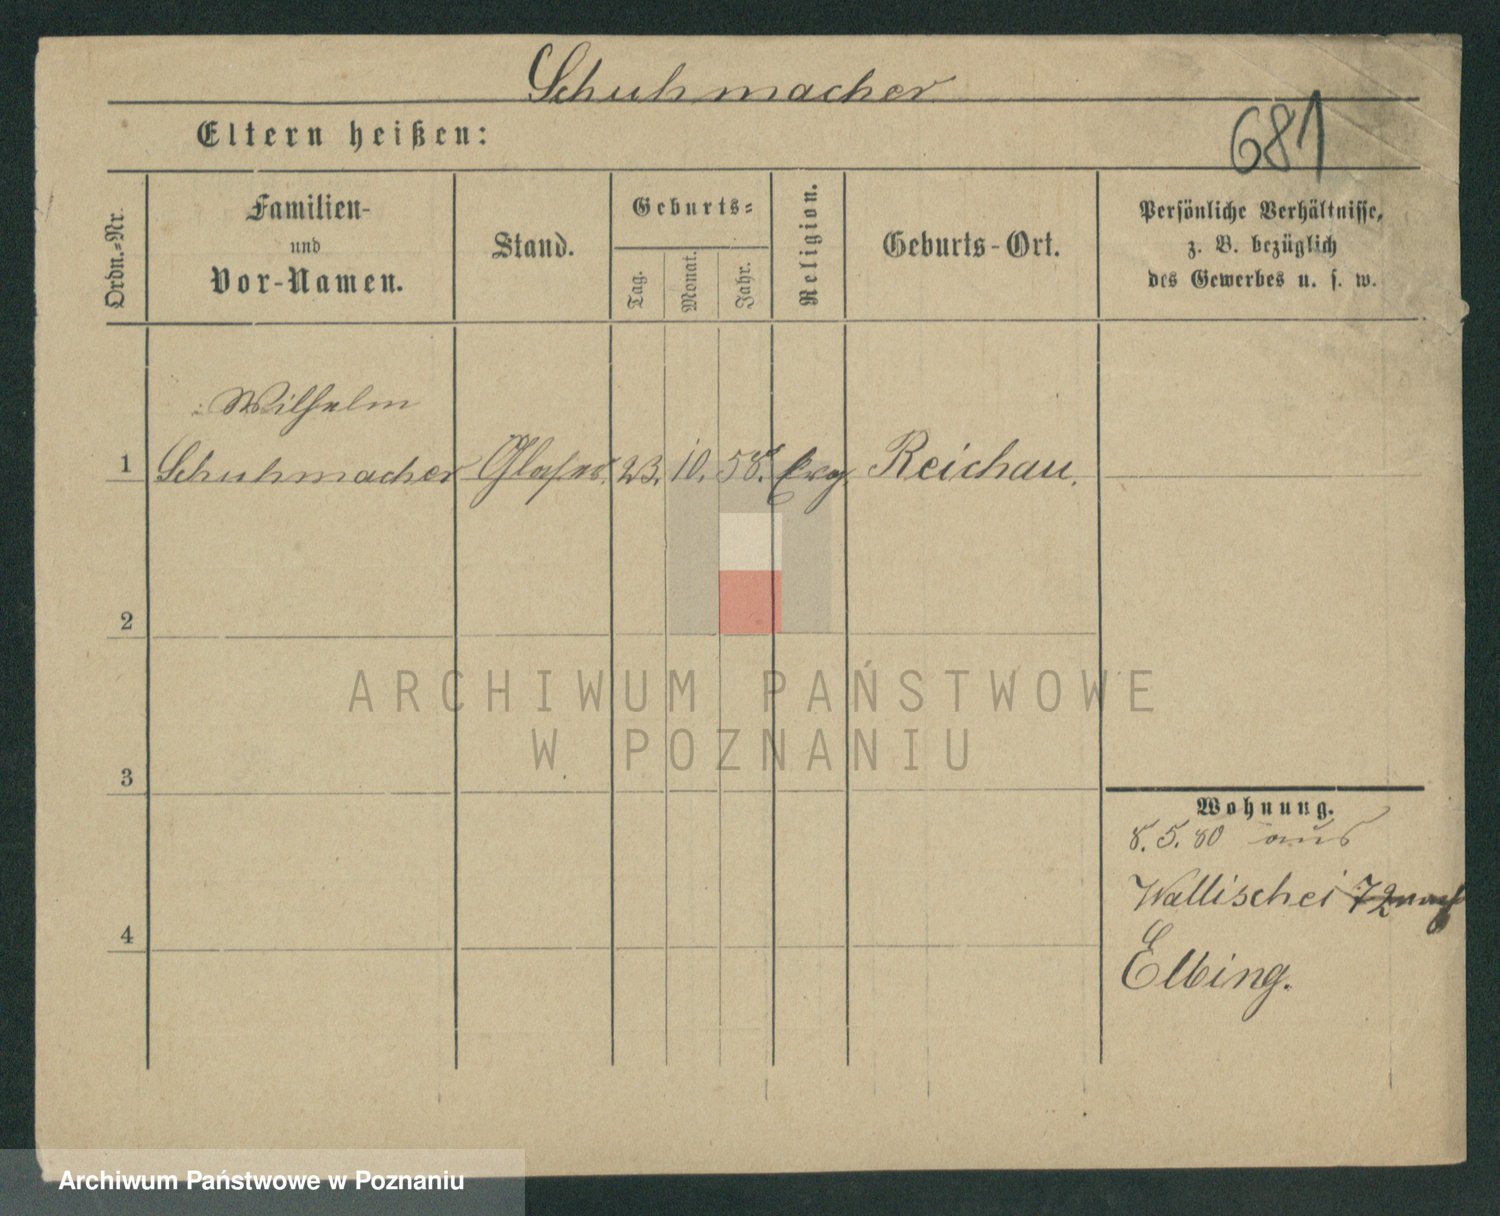 Schuhmacher
681
Eltern heißen:
Ordn.-Nr.
Familien-
und
Vor-Namen.
Stand.
Geburts-
Tag.
Monat.
Jahr.
Religion.
Geburts-Ort.
Persönliche Verhältnisse,
z. B. bezüglich
des Gewerbes u. s. w.
Wilhelm
1 Schuhmacher Glaser. 23. 10. 58. Evg. Reichau.
2
ARCHIWUM PAŃSTWOWE
W POZNANIU
3
Wohnung.
8. 5. 80 aus
Wallischei 72 nach
4
Elbing.
Archiwum Państwowe w Poznaniu